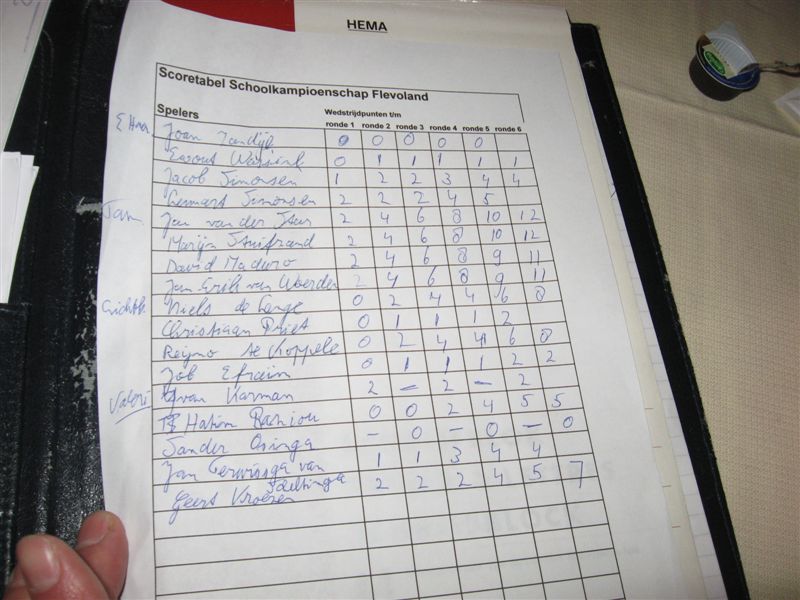 HEMA
Scoretabel Schoolkampioenschap Flevoland
Spelers Wedstrijdpunten t/m
ronde 1 ronde 2 ronde 3 ronde 4 ronde 5 ronde 6
Joan 0 0 0 0 0
Ewout 0 1 1 1 1 1
Jacob Simonsen 1 2 2 3 4 4
Lennart Simonsen 2 2 2 4 5
Jan van der Star 2 4 6 8 10 12
Marijn Stuifzand 2 4 6 8 10 12
David Maduro 2 4 6 8 9 11
Jan Erik van Woerden 2 4 6 8 9 11
Niels de Lange 0 2 4 4 6 8
Christiaan Priet 0 1 1 1 2
Reijno te Koppele 0 2 4 4 6 8
Job Efraim 0 1 1 1 2 2
Karman 2 – 2 – 2
Hatim 0 0 2 4 5 5
Sander Osinga – 0 – 0 – 0
Jan van 1 1 3 4 4
Geert Vroezen 2 2 2 4 5 7